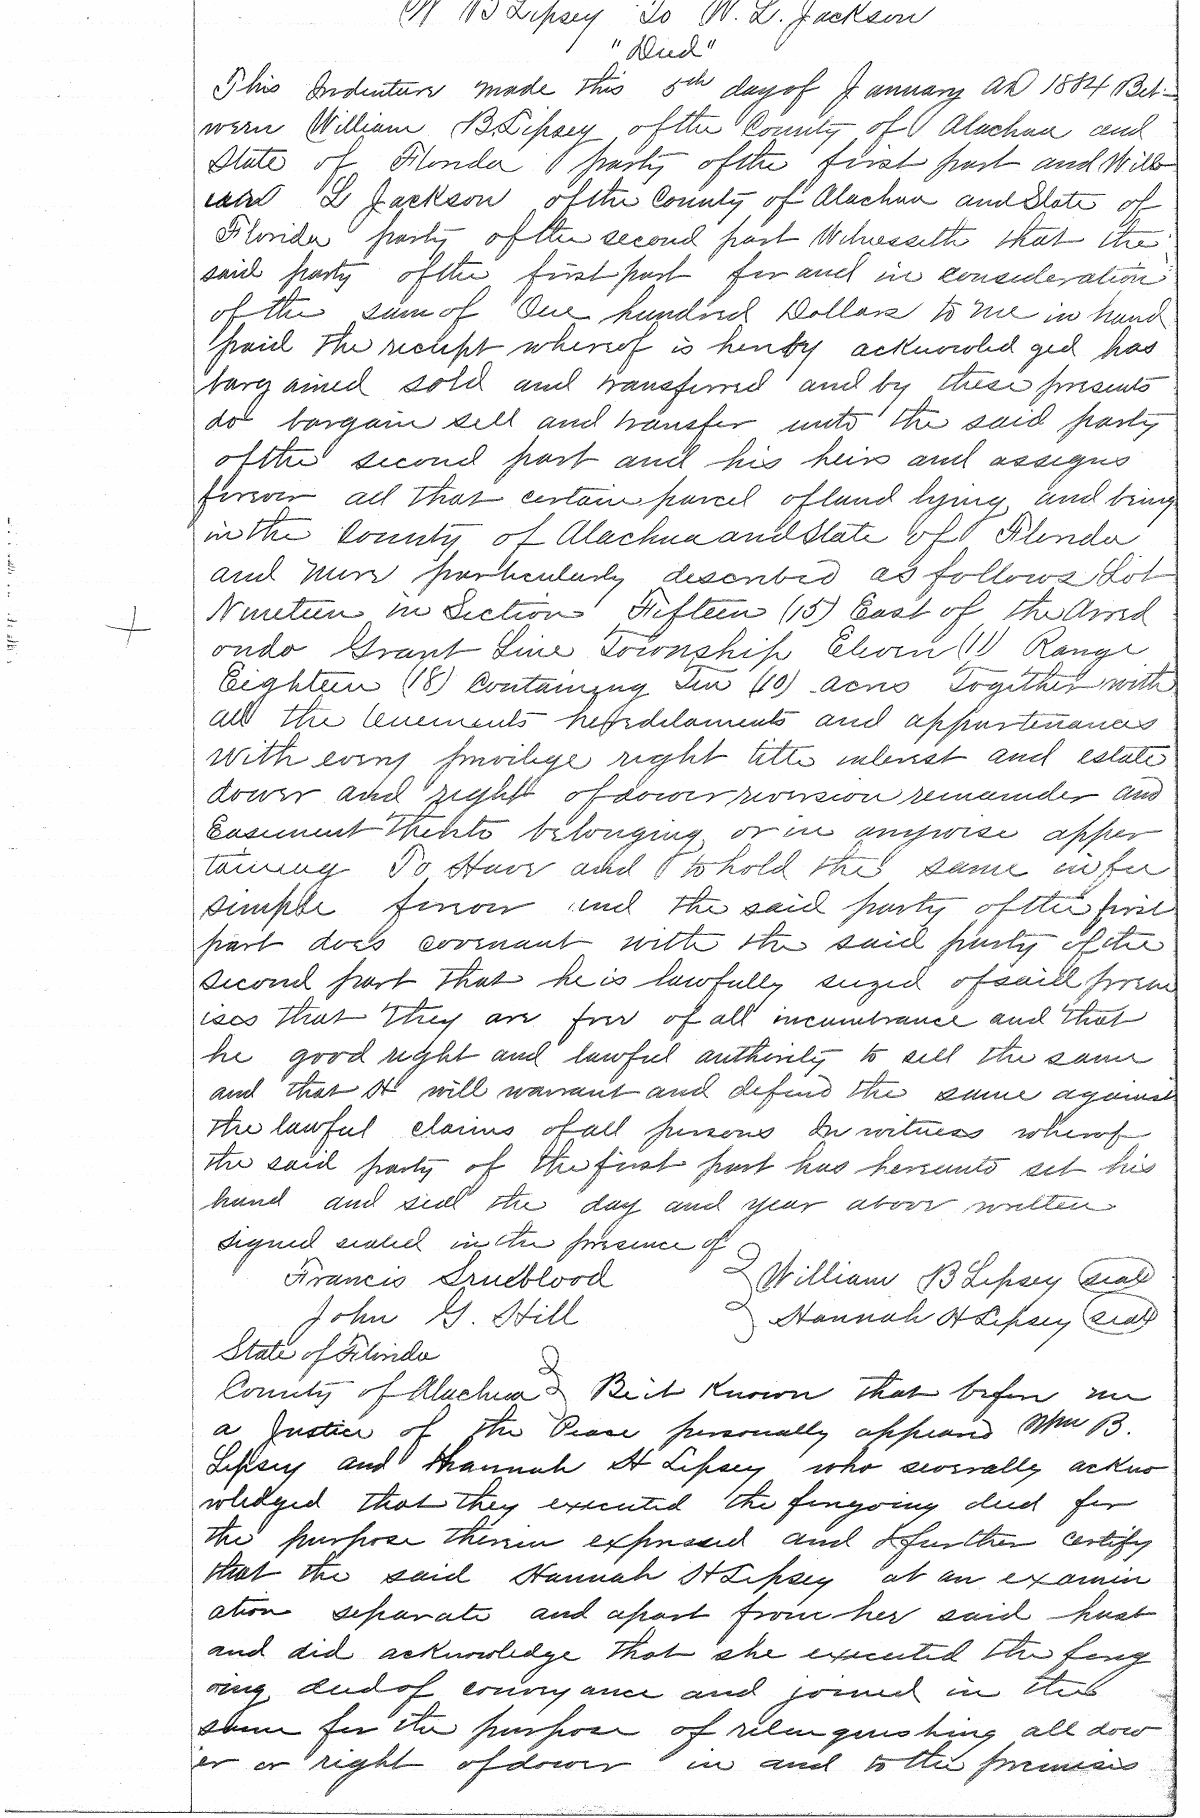 W B Lipsey To W. L. Jackson
"Deed"
This Indenture made this 5th day of January AD 1884 Bet-
ween William B Lipsey of the County of Alachua and
State of Florida party of the first part and Will
iard L Jackson of the County of Alachua and State of
Florida party of the second part Witnesseth that the
said party of the first part for and in consideration
of the sum of One hundred Dollars to me in hand
paid the receipt whereof is hereby acknowled ged has
barg ained sold and transferred and by these presents
do bargain sell and transfer unto the said party
of the second part and his heirs and assigns
forever all that certain parcel of land lying and being
in the County of Alachua and State of Florida
and more particularly described as follows Lot
Nineteen in Section Fifteen (15) East of the Arred
ondo Grant Line Township Eleven (11) Range
Eighteen (18) Containing Ten (10) acres Together with
all the tenements heredelaments and appurtenances
With every privilege right title interest and estate
dower and right of dower reversion remainder and
Easement thereto belonging or in anywise apper
taining To Have and to hold the same in fee
simple forever and the said party of the first
part does covenant with the said party of the
second part that he is lawfully seized of said prem
ises that they are free of all incumbrance and that
he good right and lawful authority to sell the same
and that H will warrant and defend the same against
the lawful claims of all persons In witness whereof
the said party of the first part has hereunto set his
hand and seal the day and year above written
signed sealed in the presence of
Francis Trueblood William B Lipsey (seal)
John G. Hill Hannah H Lipsey (seal)
State of Florida
County of Alachua Be it Known that before me
a Justice of the Peace personally appeared Wm B.
Lipsey and Hannah H Lipsey who severally ackno
wledged that they executed the foregoing deed for
the purpose therein expressed and I further certify
that the said Hannah H Lipsey at an examin
ation separate and apart from her said husb
and did acknowledge that she executed the foreg
oing deed of convey ance and joined in the
same for the purpose of relinquishing all dow
er or right of dower in and to the premises